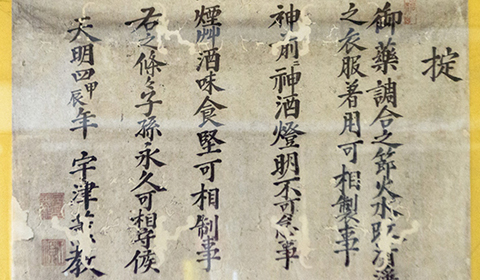 掟
御藥調合之節火水
之衣服著用可相製事
神前ニ神酒燈明不可怠事
煙艸酒味食堅可相制事
右之條々子孫永久可相守候
天明四甲辰年 宇津教